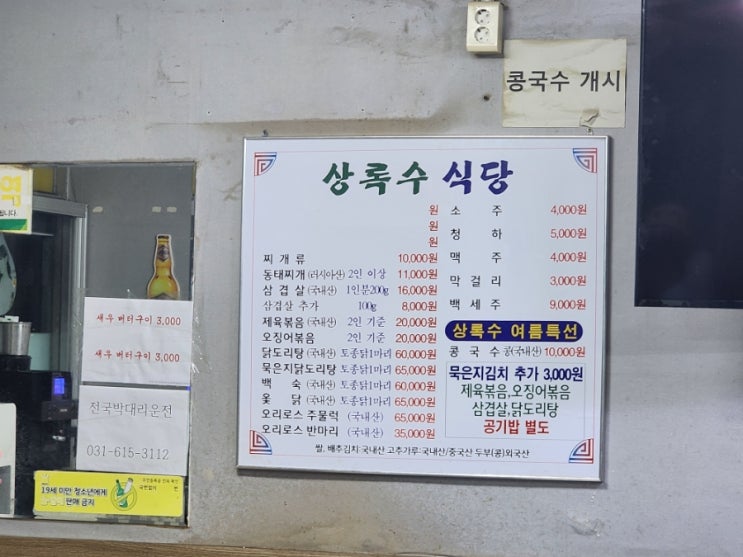 콩국수 개시
상록수 식당
원
원
원
찌개류 10,000원
동태찌개(러시아산) 2인 이상 11,000원
삼겹살(국내산) 1인분200g 16,000원
삼겹살 추가 100g 8,000원
제육볶음(국내산) 2인 기준 20,000원
오징어볶음 2인 기준 20,000원
닭도리탕(국내산) 토종닭1마리 60,000원
묵은지닭도리탕(국내산) 토종닭1마리 60,000원
백숙(국내산) 토종닭1마리 60,000원
옻닭(국내산) 토종닭1마리 65,000원
오리로스 주물럭 (국내산) 65,000원
오리로스 반마리 (국내산) 35,000원
소주 4,000원
청하 5,000원
맥주 4,000원
막걸리 3,000원
백세주 9,000원
상록수 여름특선
콩국수 콩(국내산) 10,000원
묵은지김치 추가 3,000원
제육볶음,오징어볶음
삼겹살,닭도리탕
공기밥 별도
쌀, 배추김치:국내산 고추가루:국내산/중국산 두부(콩)외국산
새우 버터구이 3,000
새우 버터구이 3,000
전국박대리운전
031-615-3112
19세 미만 청소년에게
판매 금지